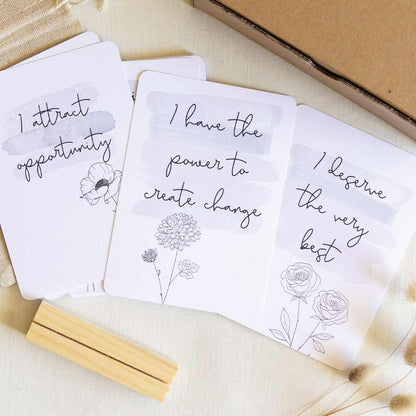 I attract
opportunity
I have the
power to
create change
I deserve
the very
best